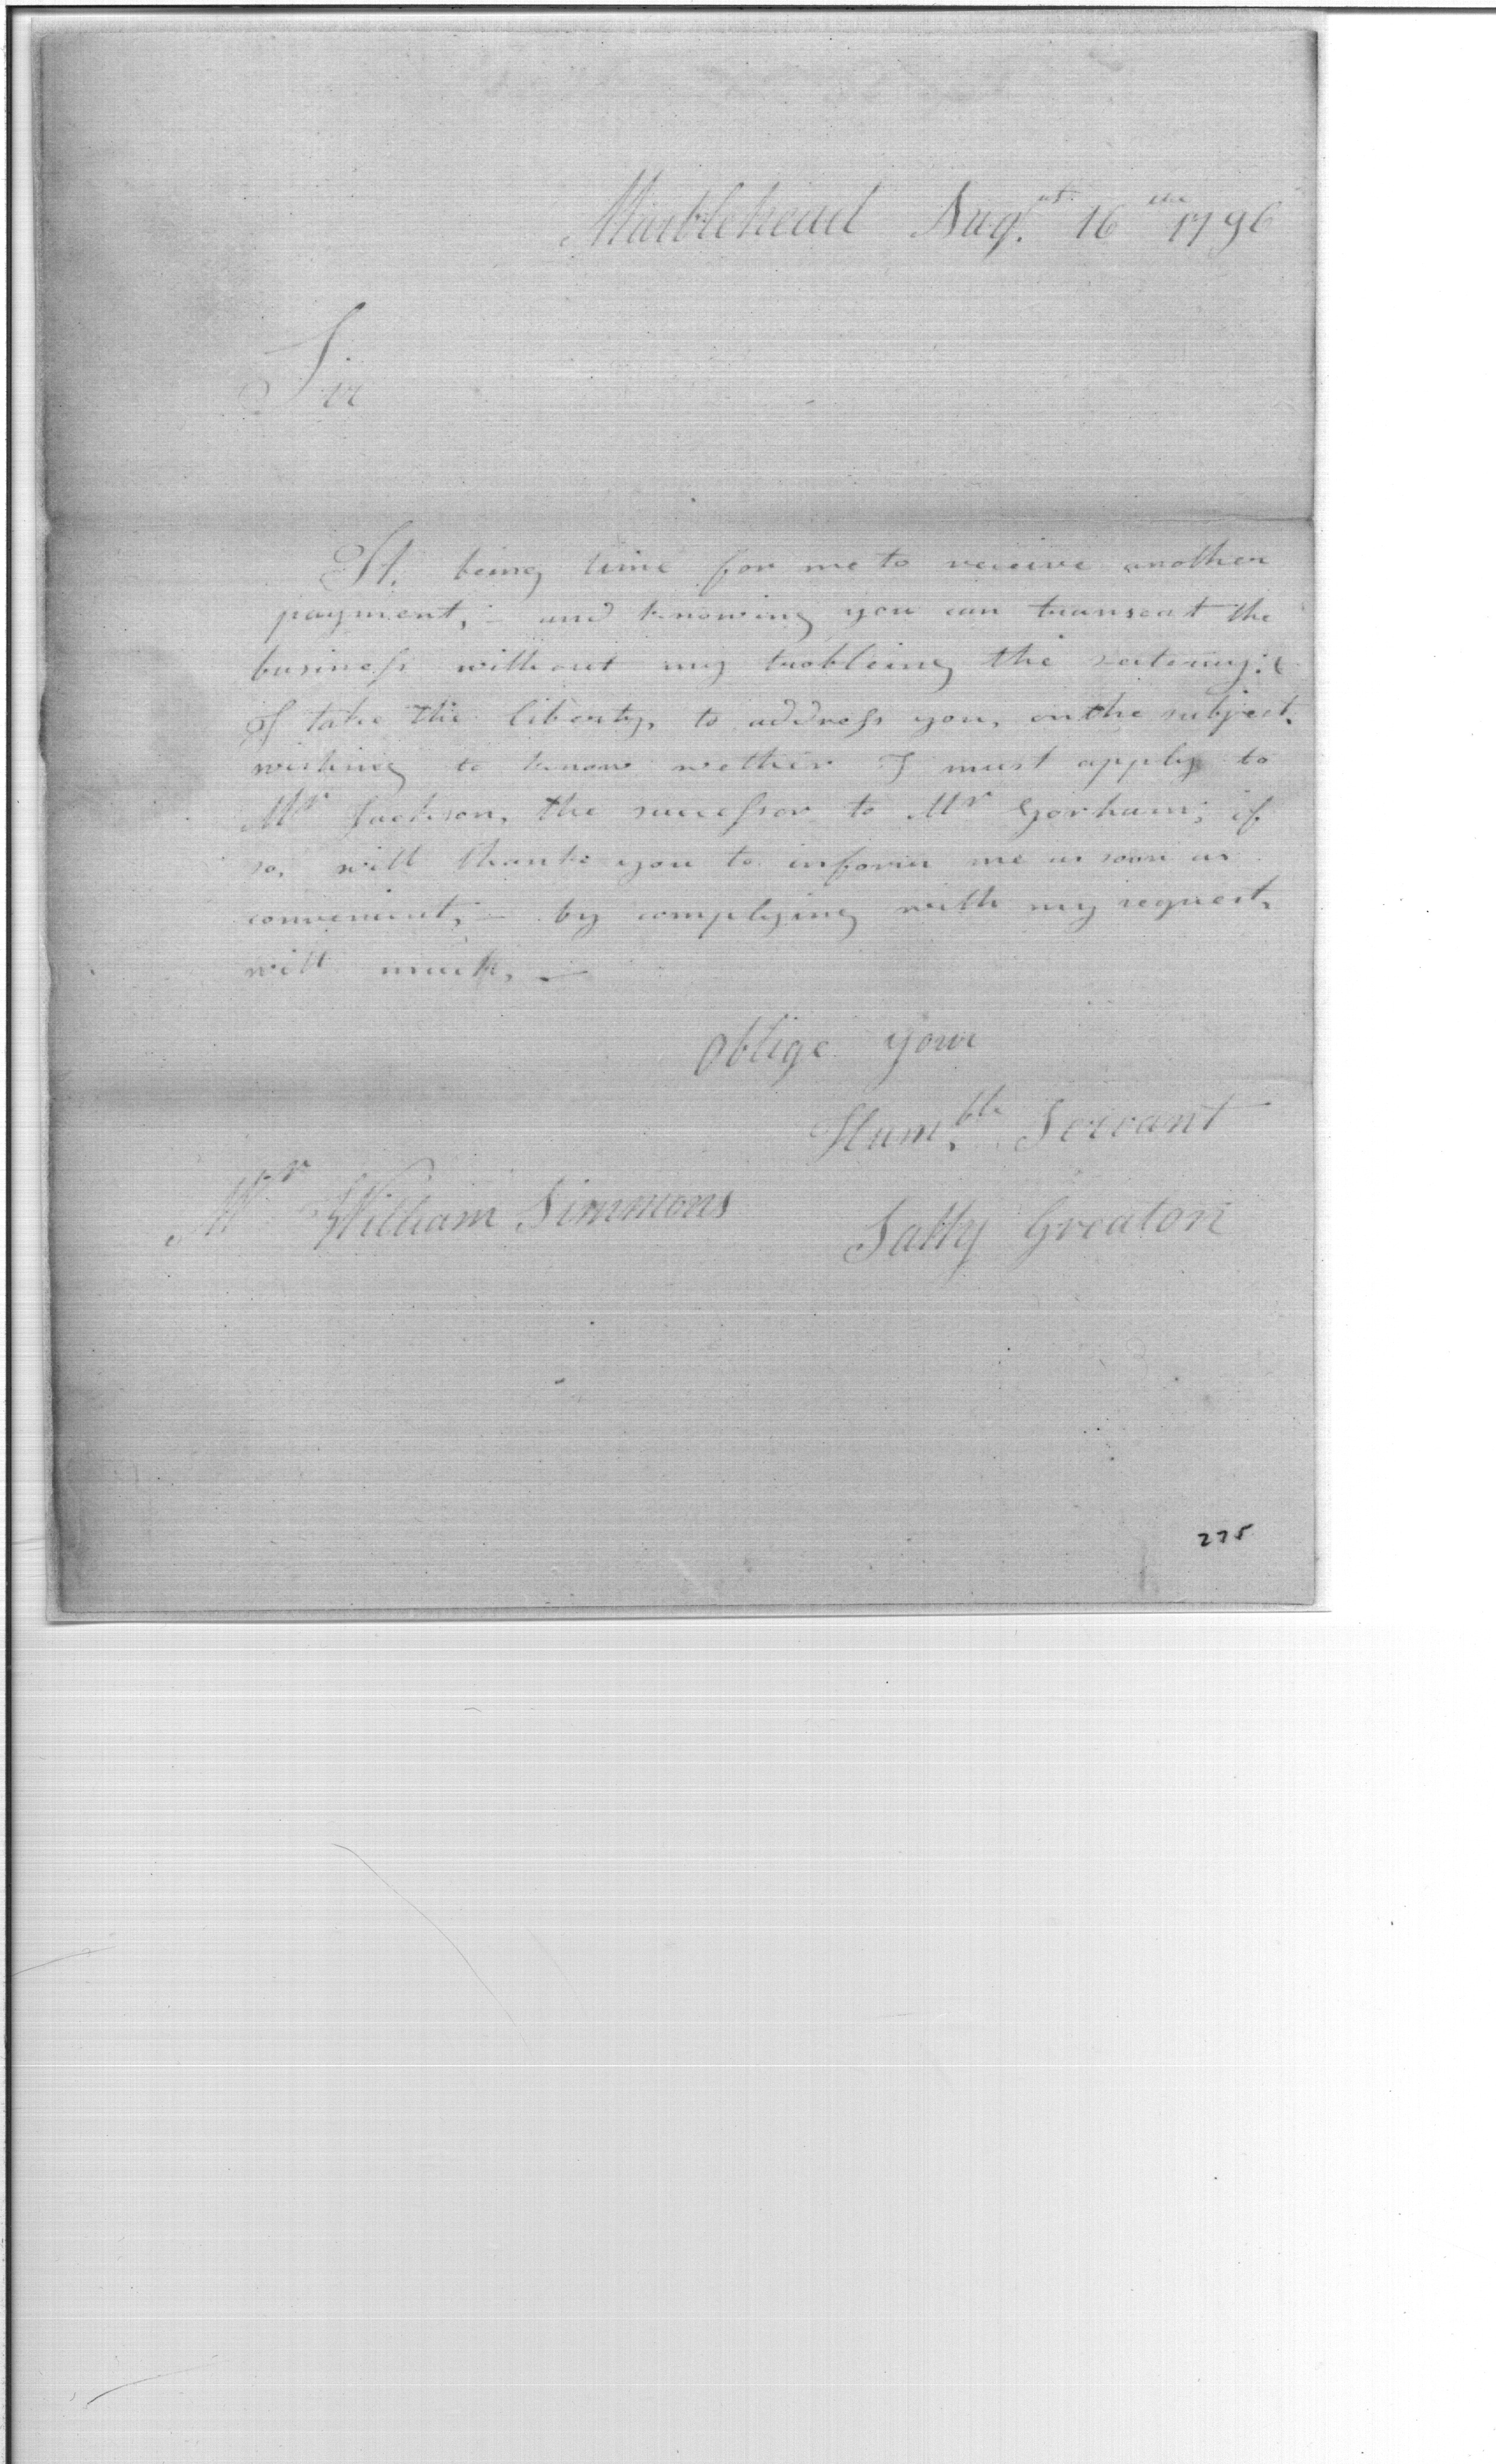 Marblehead Augst. 16th 1796
Sir
It, being time for me to receive another
payment, - and knowing you can transeat the
business without my trobleing the
I take the liberty, to address you, on the subject,
wishing to know wether I must apply to
Mr Jackson, the successor to Mr Gorham; if
so, will thank you to inform me as soon as
convenient, - by complying with my request,
will much, —
Oblige your
Humble. Servant
Mr William Simmons
Sally Greaton
275